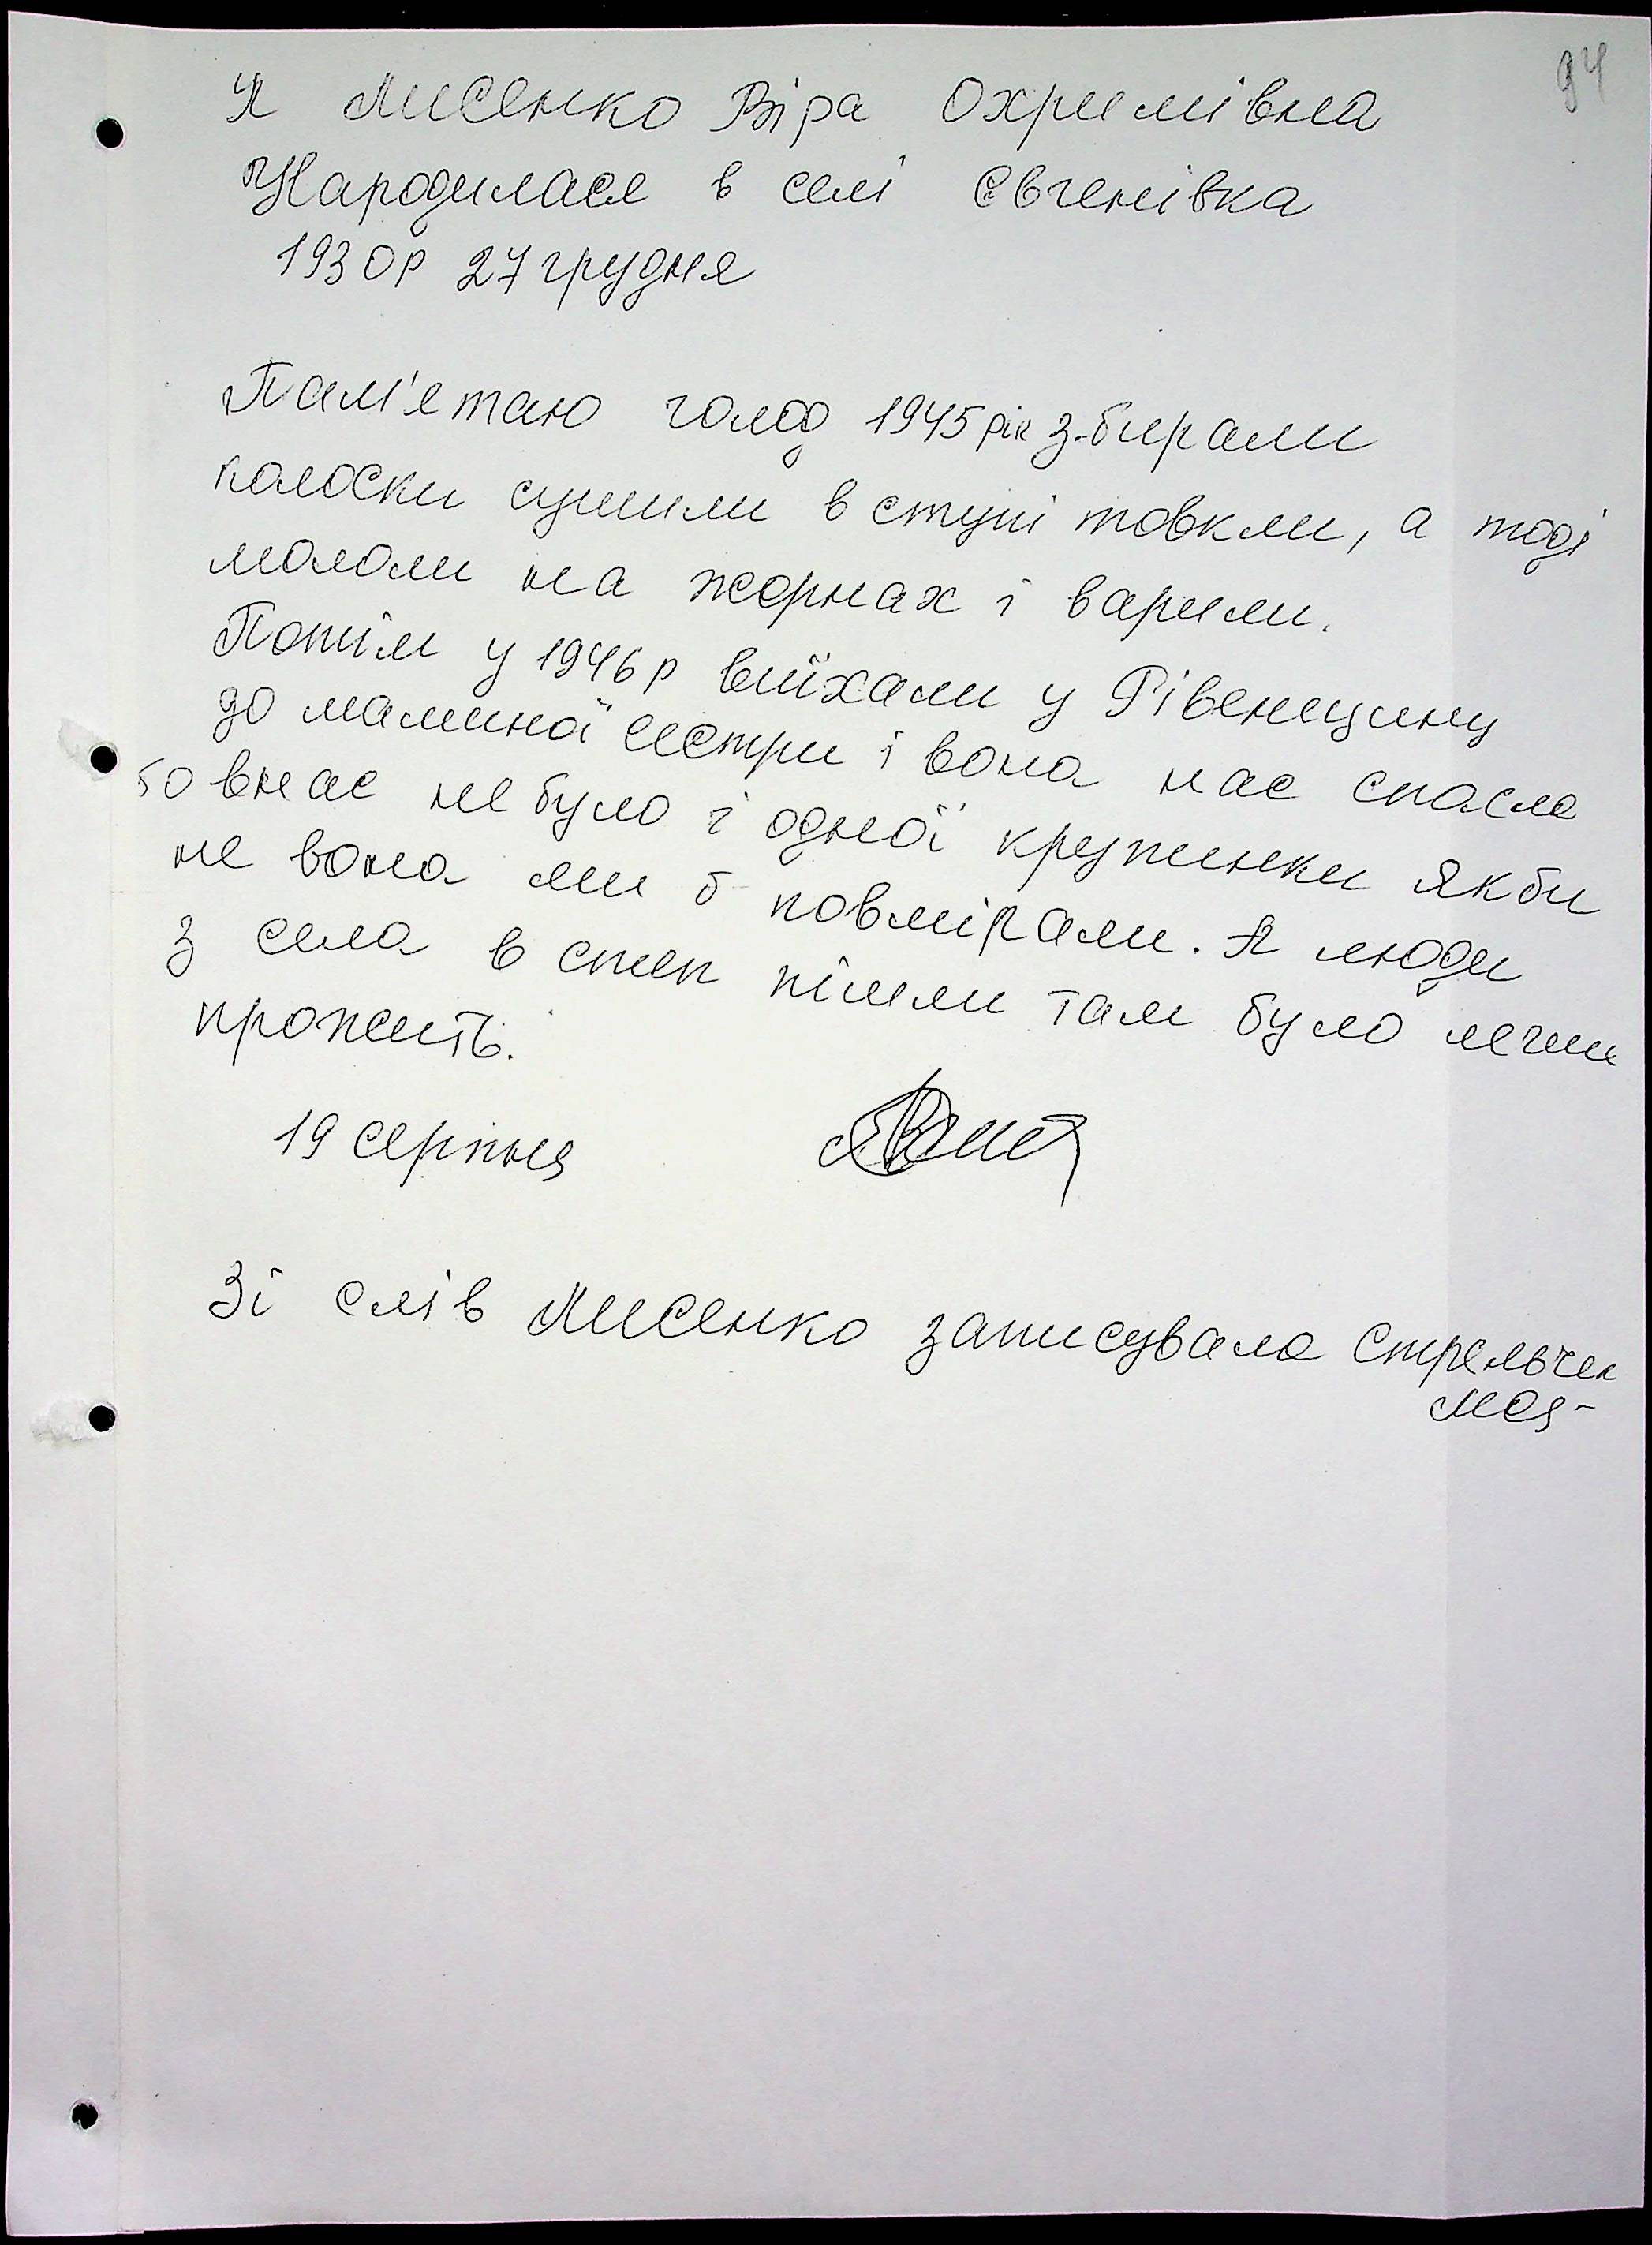 94
Я Лисенко Віра Охримівна
Народилася в селі Євгенівка
1930р 27 грудня
Пам'ятаю голод 1945 рік збирали
колоски сушили в ступі товкли, а тоді
мололи на жорнах і варили.
Потім у 1946р виїхали у Рівенщину
до маминої сестри і вона нас спасла
бо внас не було і одної крупинки якби
не вона ми б повмірали. А люди
з села в степ пішли там було легше
прожить.
19 серпня
Зі слів Лисенко записувала Стрельчен